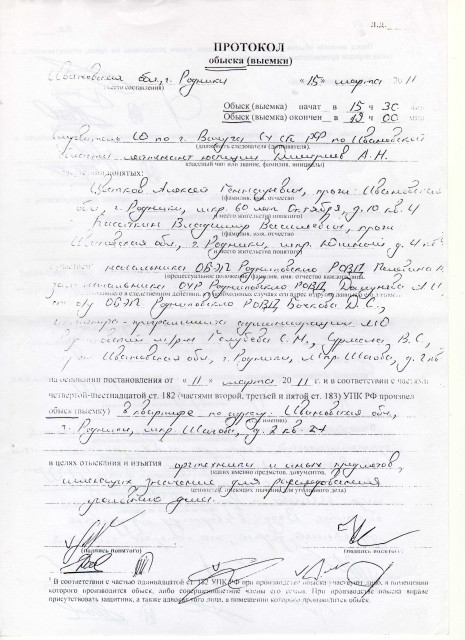 Л.Д.
ПРОТОКОЛ
обыска (выемки)
Ивановская обл., г. Родники « 15 » марта 2011
(место составления)
Обыск (выемка) начат в 15 ч 30
Обыск (выемка) окончен в 19 ч 00
Следователь СО по г. Вичуга СУ СК РФ по Ивановской
(должность следователя (дознавателя),
области лейтенант юстиции Дмитриев А.Н.
классный чин или звание, фамилия, инициалы)
понятых:
Цветков Алексей Геннадьевич, прож: Ивановская
(фамилия, имя, отчество
обл., г. Родники, мкр. 60 лет Октября, д. 10 кв. 4
и место жительства понятого)
Касаткин Владимир Васильевич, прож:
(фамилия, имя, отчество
Ивановская обл., г. Родники, мкр. Южный д. 4 кв.
и место жительства понятого)
участием начальника ОБЭП Родниковского РОВД
(процессуальное положение, фамилия, имя, отчество каждого
зам. начальника ОУР Родниковского РОВД
о/у ОБЭП Родниковского РОВД Бочкова Д.С.,
администрации МО
Голубева С.Н., С.,
Ивановская обл., г. Родники, мкр. Шагова, д. 2 кв
на основании постановления от « 11 » марта 2011 г. и в соответствии с частями
четвертой-шестнадцатой ст. 182 (частями второй, третьей и пятой ст. 183) УПК РФ произвел
обыск (выемку) в квартире по адресу: Ивановская обл.,
г. Родники, мкр. Шагова, д. 2 кв. 27
в целях отыскания и изъятия оргтехники и иных предметов,
имеющих значение для расследования
ценностей, имеющих значение для уголовного дела)
уголовного дела.
(подпись понятого) (подпись понятого)
¹ В соответствии с частью одиннадцатой ст. 182 УПК РФ при производстве обыска участвуют лицо, в помещении
которого производится обыск, либо совершеннолетние члены его семьи. При производстве обыска вправе
присутствовать защитник, а также адвокат того лица, в помещении которого производится обыск.